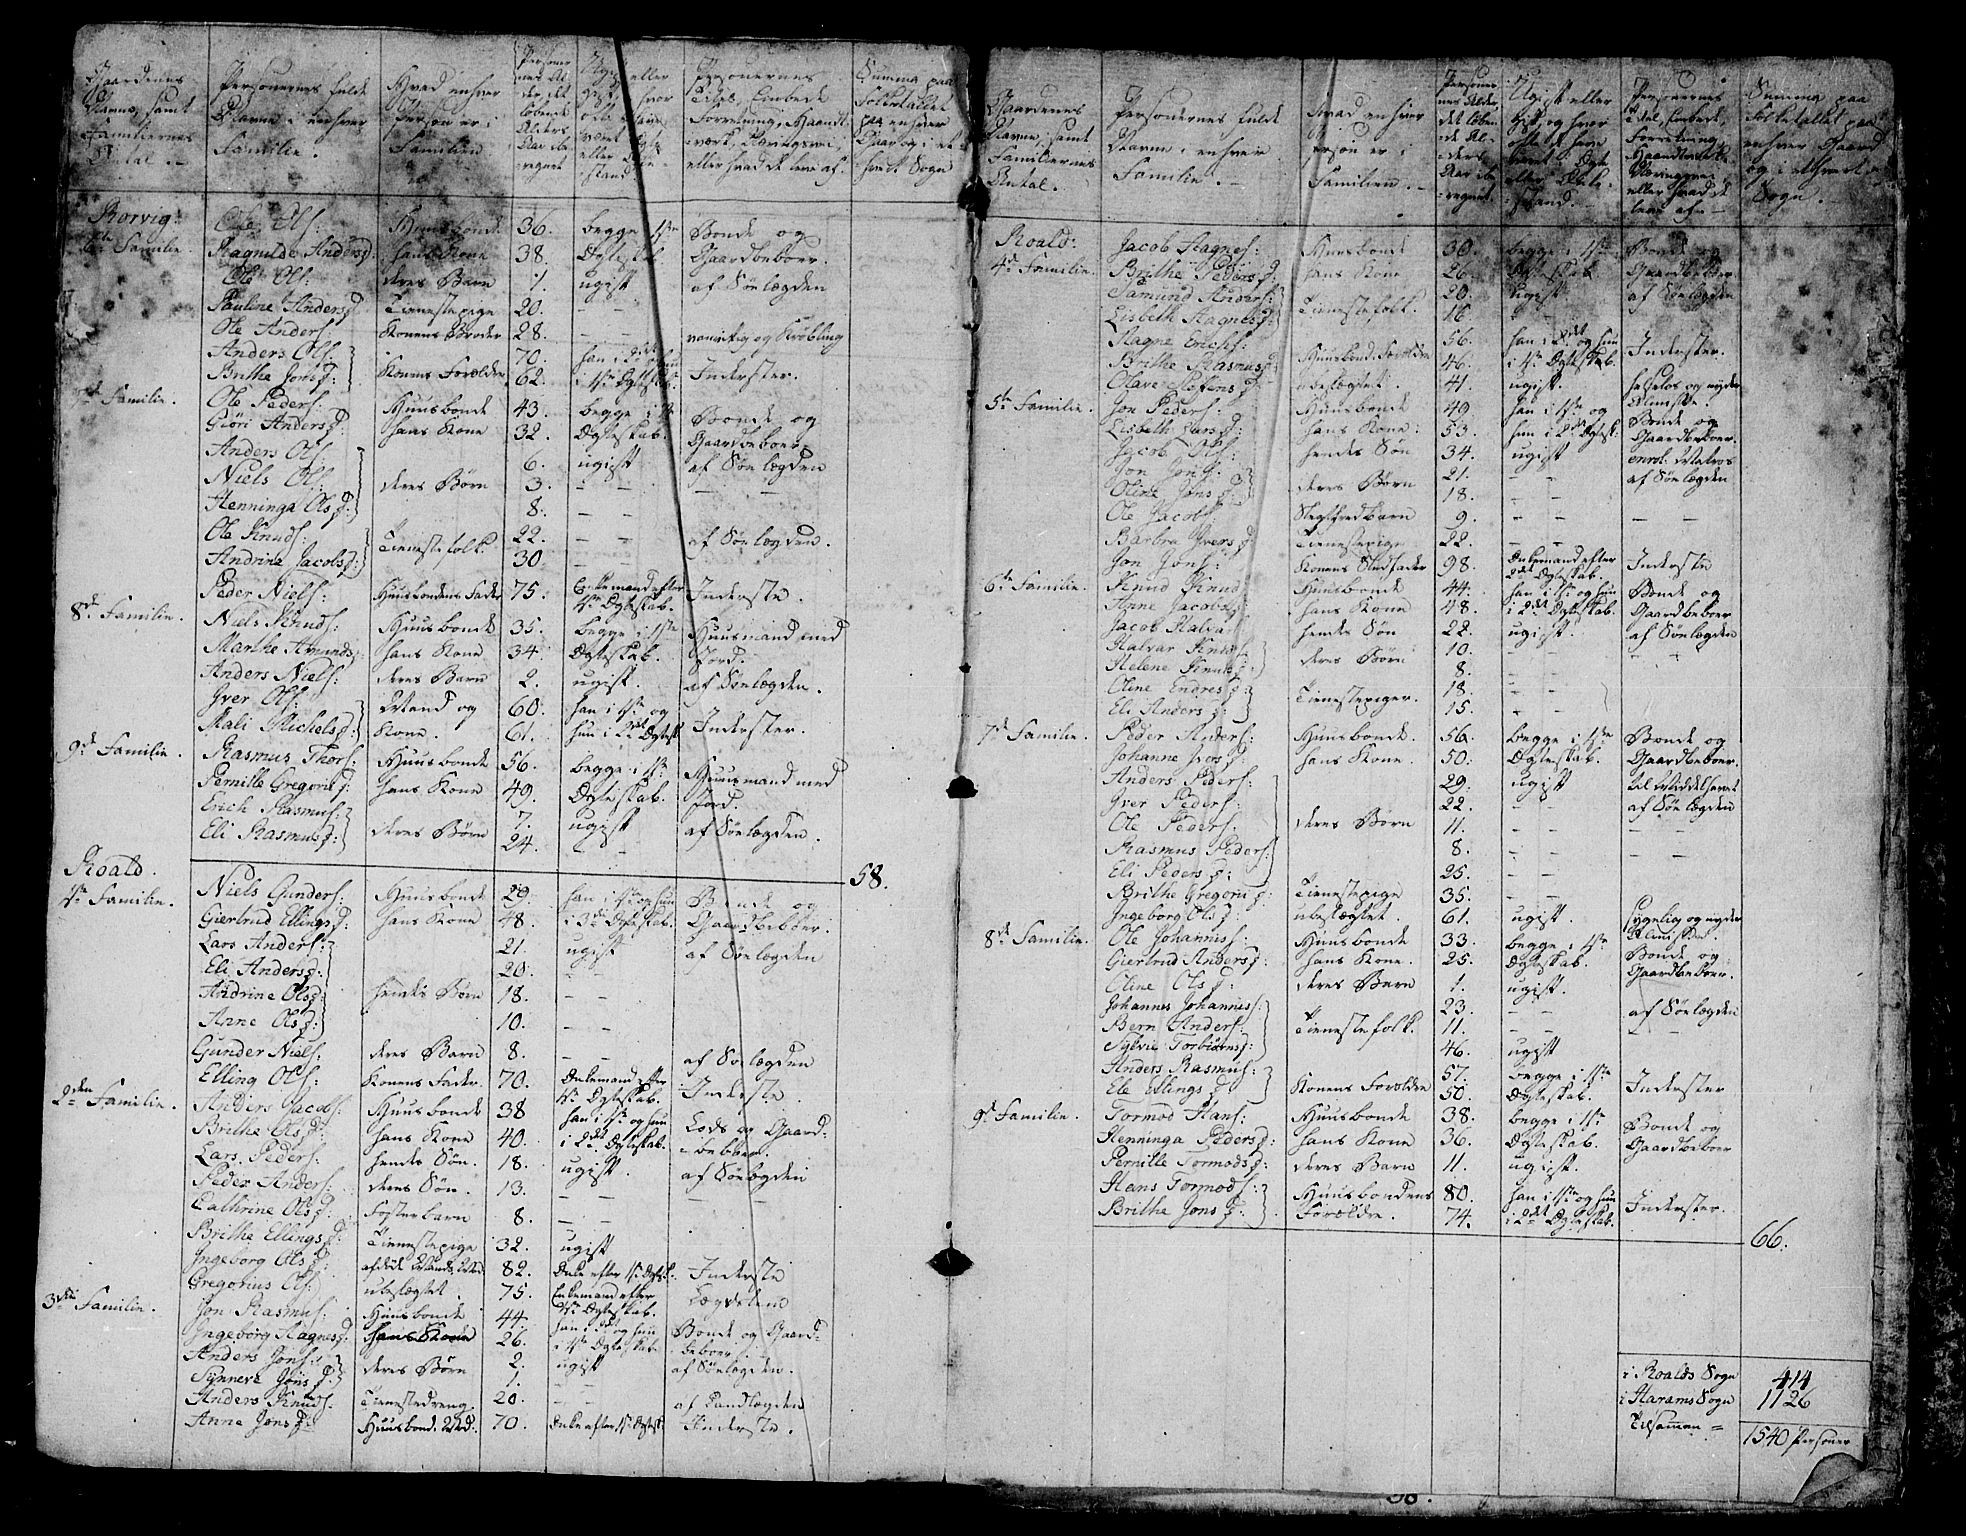 Gaardenes Navne, samt Familiernes Antal.
Personernes fulde Navne i enhver Familie.
Hvad enhver Person er i Familien
Personernes Alder, det løbende Alders Aar iberegnet
Ugift eller gift, og hvor ofte de have været i Ægte- eller Enkestand
Personernes Titel, Embede, Forretning, Haandværk, Næringsvei, eller hvad de leve af.
Summa paa Folketallet paa enhver Gaard og i ethvert Sogn
Rorvig.
6te Familie. Ole Ols: Huusbonde 36. begge i 1ste Bonde og
Ragnilde Andersd: hans Kone 38. Ægteskab Gaardbeboer.
Ole Ols: deres Barn 1. ugift af Søelægden
Pauline Andersd: Tienestepige 20. – –
Ole Anders: Konens Broder 28. – – vanvitig og Krøbling
Anders Ols: 70. han i 2det hun
Brithe Jonsd: Konens Forældre 62. i 1ste Ægteskab. Inderster.
7de Familie. Ole Peders: Huusbonde 43. begge i 1ste Bonde og
Giøri Andersd: hans Kone 32. Ægteskab. Gaardbeboer
Anders Ols: 6. ugift af Søelægden
Niels Ols: deres Børn 3. – – – –
Henninga Olsd: 8. – –
Ole Knuds: 22. – – af Søelægden.
Andrina Jacobsd: Tienestefolk. 30 – –
Peder Niels: Huusbondens Fader 75. Enkemand efter 1ste Ægteskab. Inderste.
8de Familie. Niels Knuds: Huusbonde 35. begge i 1ste Huusmand med
Marthe Amundsd: hans Kone 34. Ægteskab. Jord.
Anders Niels: deres Barn 2. ugift. af Søelægden.
Iver Ols: Mand og 60. han i 1ste og
Mali Michelsd: Kone. 61. hun i 2det Ægtesk. Inderster.
9de Familie. Rasmus Thors: Huusbonde 56. begge i 1ste Huusmand med
Pernille Gregorid: hans Kone 49. Ægteskab. Jord.
Erich Rasmus: 7. ugift af Søelægden.
Eli Rasmusd: deres Børn 24. – –
58.
Roald.
1ste Familie. Niels Gunders: Huusbonde 29. han i 1ste og hun Bonde og
Giertrud Ellingsd: hans Kone 48. i 3de Ægteskab. Gaardbeboer.
Lars Anders: 21. ugift af Søelægden
Eli Andersd: 20. – –
Andrine Olsd: hendes Børn 18. – –
Anne Olsd: 10. – –
Gunder Niels: deres Barn 8. – – af Søelægden
Elling Ols: Konens Fader 70. Enkemand efter 1ste Ægteskab. Inderste.
2den Familie. Anders Jacobs: Huusbonde 38 han i 1ste og hun Lods og Gaard-
Brithe Olsd: hans Kone 40. i 2det Ægteskab. beboer.
Lars. Peders: hendes Søn. 18. ugift. af Søelægden
Peder Anders: deres Søn. 13. – – –
Cathrine Olsd: Fosterbarn 8. – –
Brithe Ellingsd: Tienestepige 32. ugift
Ingeborg Olsd: 82. Enke efter 1ste Ægtesk. Inderste
Gregorius Ols: ubeslægtet. 75. Enkemand efter 1ste Ægteskab. Lægdslem
3die Familie. Jon Rasmus: Huusbonde 44. han i 2det og hun Bonde og Gaard-
Ingeborg Hagnesd: hans Kone 26. i 1ste Ægteskab beboer
Anders Jons: 2. ugift af Søelægden.
Synneve Jonsd: deres Børn 1. – –
Anders Knuds. Tienestedreng. 20. – – af Landlægden
Anne Jonsd: Huusbond. Mod. 70. Enke efter 1ste Ægtesk. Inderste.
Gaardenes Navne, samt Familiernes Antal.
Personernes fulde Navne i enhver Familie.
Hvad enhver Person er i Familien.
Personernes Alder, det løbende Alders Aar iberegnet
Ugift eller gift, og hvor ofte de have været i Ægte- eller Enkestand.
Personernes Titel, Embede, Forretning, Haandværk, Næringsvei, eller hvad de leve af
Summa paa Folketallet paa enhver Gaard og i ethvert Sogn.
Roald:
4de Familie. Jacob Hagnes: Huusbonde 30. begge i 1ste Bonde og
Brithe Pedersd: hans Kone 26. Ægteskab Gaardbeboer.
Samund Anders: 20. ugift af Søelægden
Lisbeth Hagnesd: Tienestefolk. 16. –
Hagne Erichs: 56. han i 2det og hun
Brithe Rasmusd: Huusbond. Forældre 46. i 1ste Ægteskab. Inderster.
Olave Steffensd: ubeslægtet. 41. ugift. og nyder Almisse.
5te Familie. Jon Peders: Huusbonde 49. han i 1ste og Bonde og
Lisbeth Larsd: hans Kone: 53. hun i 2det Ægtesk: Gaardbeboer.
Jacob Ols: hendes Søn 34. ugift enrol. Matros
Jon Jons: 21. – – af Søelægden
Oline Jonsd: deres Børn 18. – –
Ole Jacobs: Slegfredbarn 9. – – – –
Barbra Iversd: Tienestepige 22. – –
Jon Jons: Konens Stedfader 98. Enkemand efter 2det Ægteskab. Inderste
6te Familie. Knud Knuds: Huusbonde 44. han i 1ste og hun Bonde og
Anne Jacobsd: hans Kone 48. i 2det Ægteskab. Gaardbeboer
Jacob Halvars: hendes Søn 22. ugift. af Søelægden
Halvar Knuds: 10. – – – –
Helene Knudsd: deres Børn 8. – –
Oline Endresd: 18. – –
Eli Andersd: Tienestepiger. 15. – –
7de Familie. Peder Anders: Huusbonde. 56. begge i 1ste Bonde og
Johanne Iversd: hans Kone. 50. Ægteskab. Gaardbeboer.
Anders Peders: 29. ugift
Iver Peders: 22. – af Søelægden
Ole Peders: deres Børn 11. – – – –
Rasmus Peders: 8. – – – –
Eli Pedersd: 25. – –
Brithe Gregorid: Tienestepige 35. – –
Ingeborg Olsd: ubeslægtet. 61. ugift. sygelig og nyder Almisse.
8de Familie. Ole Johannis: Huusbonde 33. begge i 1ste Bonde og
Giertrud Andersd: hans Kone. 25. Ægteskab. Gaardbeboer.
Oline Olsd: deres Barn 1. ugift.
Johannes Johannis: 23. – – af Søelægden
Bern Anders: Tienestefolk. 11. – – –
Sylvie Torbiørnsd: 46. ugift
Anders Rasmus: 57. begge i 1ste
Ele Ellingsd: Konens Forældre 50. Ægteskab. Inderster
9de Familie. Tormod Hans: Huusbonde 38. begge i 1ste Bonde og
Henninga Pedersd: hans Kone 36. Ægteskab. Gaardbeboer
Pernille Tormodsd: deres Barn 11. ugift.
Hans Tormods: Huusbondens 80. han i 1ste og hun
Brithe Jonsd: Forældre. 74. i 2det Ægteskab. Inderster.
66.
i Roalds Sogn 414
i Harams Sogn 1126
Tilsammen = 1540 Personer